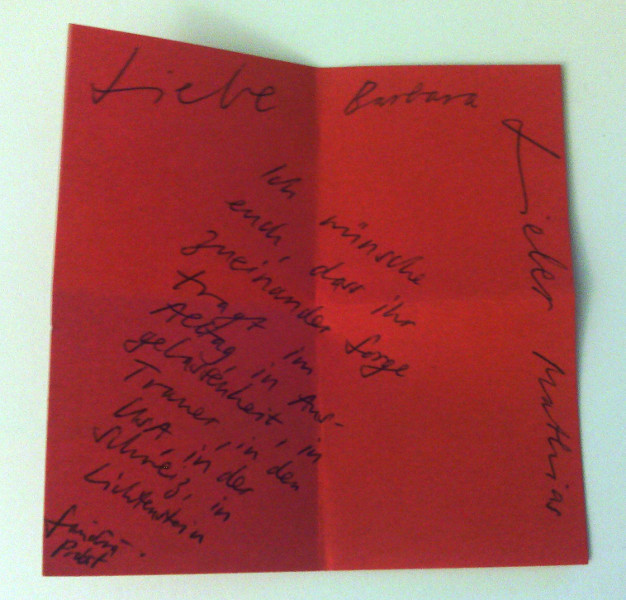 Liebe Barbara
Lieber Mathias
Ich wünsche
euch, dass ihr
zueinander Sorge
tragt im
Alltag, in Aus-
gelassenheit, in
Trauer, in den
USA, in der
Schweiz, in
Lichtenstein
Probst